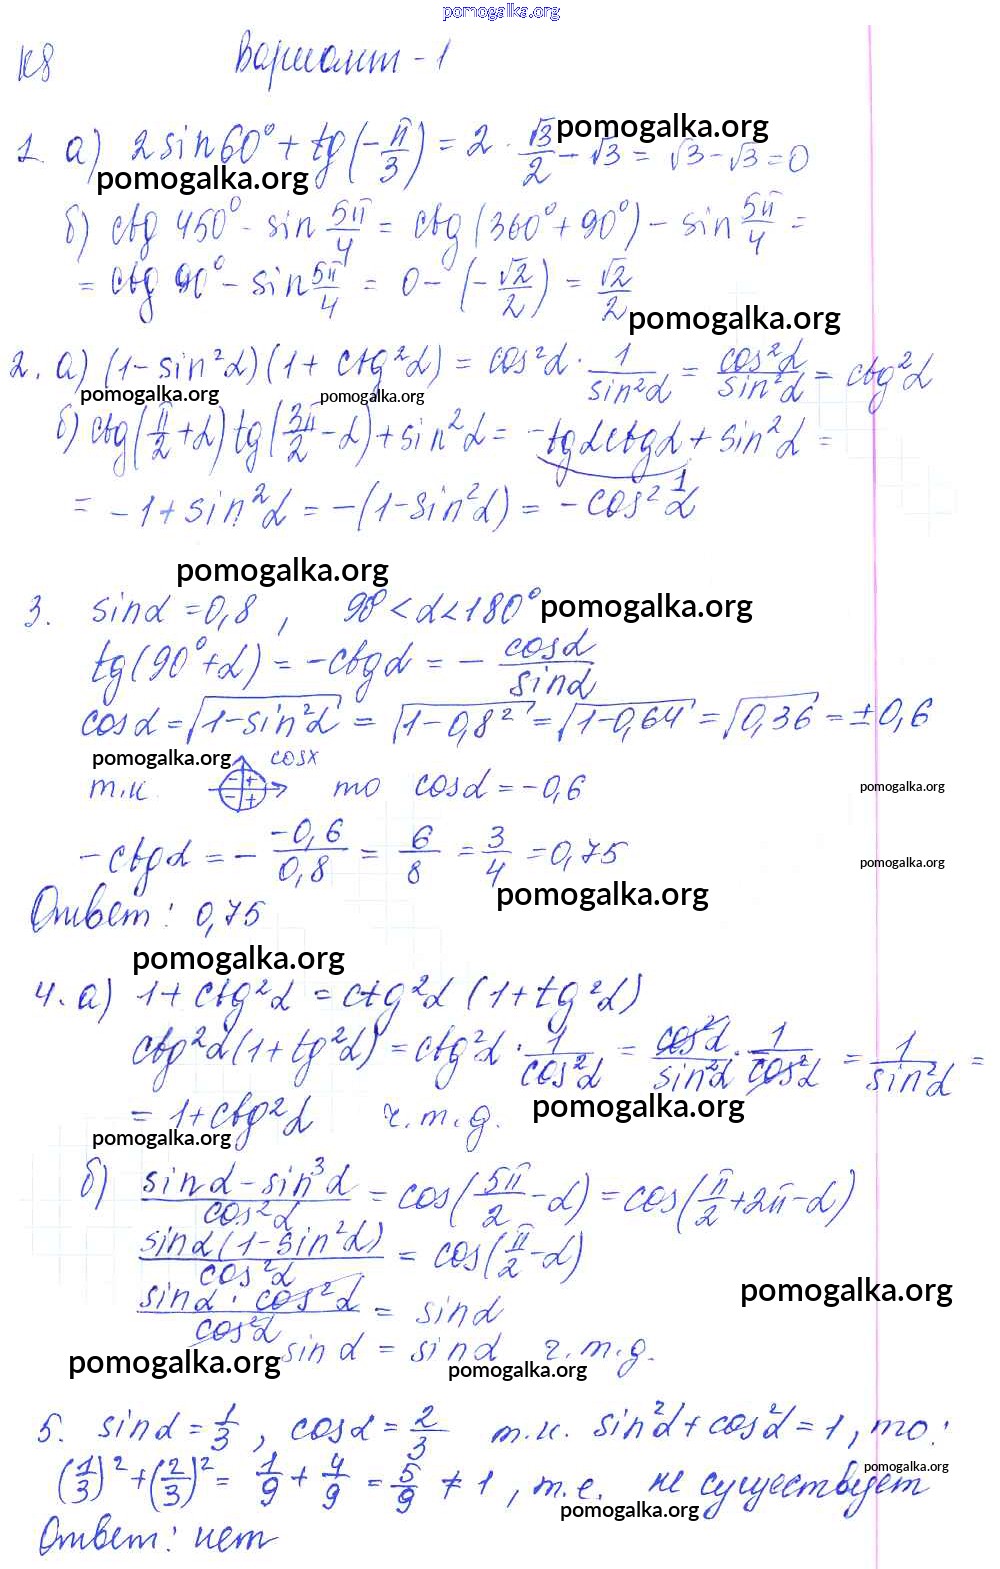 pomogalka.org
К8 Вариант - 1
1. а) 2 sin 60° + tg (-π/3) = 2 · √3/2 - √3 = √3 - √3 = 0
pomogalka.org
pomogalka.org
б) ctg 450° - sin 5π/4 = ctg (360° + 90°) - sin 5π/4 =
= ctg 90° - sin 5π/4 = 0 - (-√2/2) = √2/2
pomogalka.org
2. а) (1 - sin²α)(1 + ctg²α) = cos²α · 1/sin²α = cos²α/sin²α = ctg²α
pomogalka.org pomogalka.org
б) ctg(π/2 + α) tg(3π/2 - α) + sin²α = -tgα ctgα + sin²α =
1
= -1 + sin²α = -(1 - sin²α) = -cos²α
pomogalka.org
3. sinα = 0,8 , 90° < α < 180°
pomogalka.org
tg(90° + α) = -ctgα = - cosα/sinα
cosα = √(1 - sin²α) = √(1 - 0,8²) = √(1 - 0,64) = √0,36 = ±0,6
pomogalka.org cosx
т.к. - + - + то cosα = -0,6
pomogalka.org
-ctgα = - -0,6/0,8 = 6/8 = 3/4 = 0,75
pomogalka.org
pomogalka.org
Ответ: 0,75
pomogalka.org
4. а) 1 + ctg²α = ctg²α (1 + tg²α)
ctg²α (1 + tg²α) = ctg²α · 1/cos²α = cos²α/sin²α · 1/cos²α = 1/sin²α =
= 1 + ctg²α ч.т.д.
pomogalka.org
pomogalka.org
б) sinα - sin³α/cos²α = cos(5π/2 - α) = cos(π/2 + 2π - α)
sinα(1 - sin²α)/cos²α = cos(π/2 - α)
pomogalka.org
sinα · cos²α/cos²α = sinα
sinα = sinα ч.т.д.
pomogalka.org pomogalka.org
5. sinα = 1/3 , cosα = 2/3 т.к. sin²α + cos²α = 1, то:
(1/3)² + (2/3)² = 1/9 + 4/9 = 5/9 ≠ 1, т.е. не существует
pomogalka.org
pomogalka.org
Ответ: нет